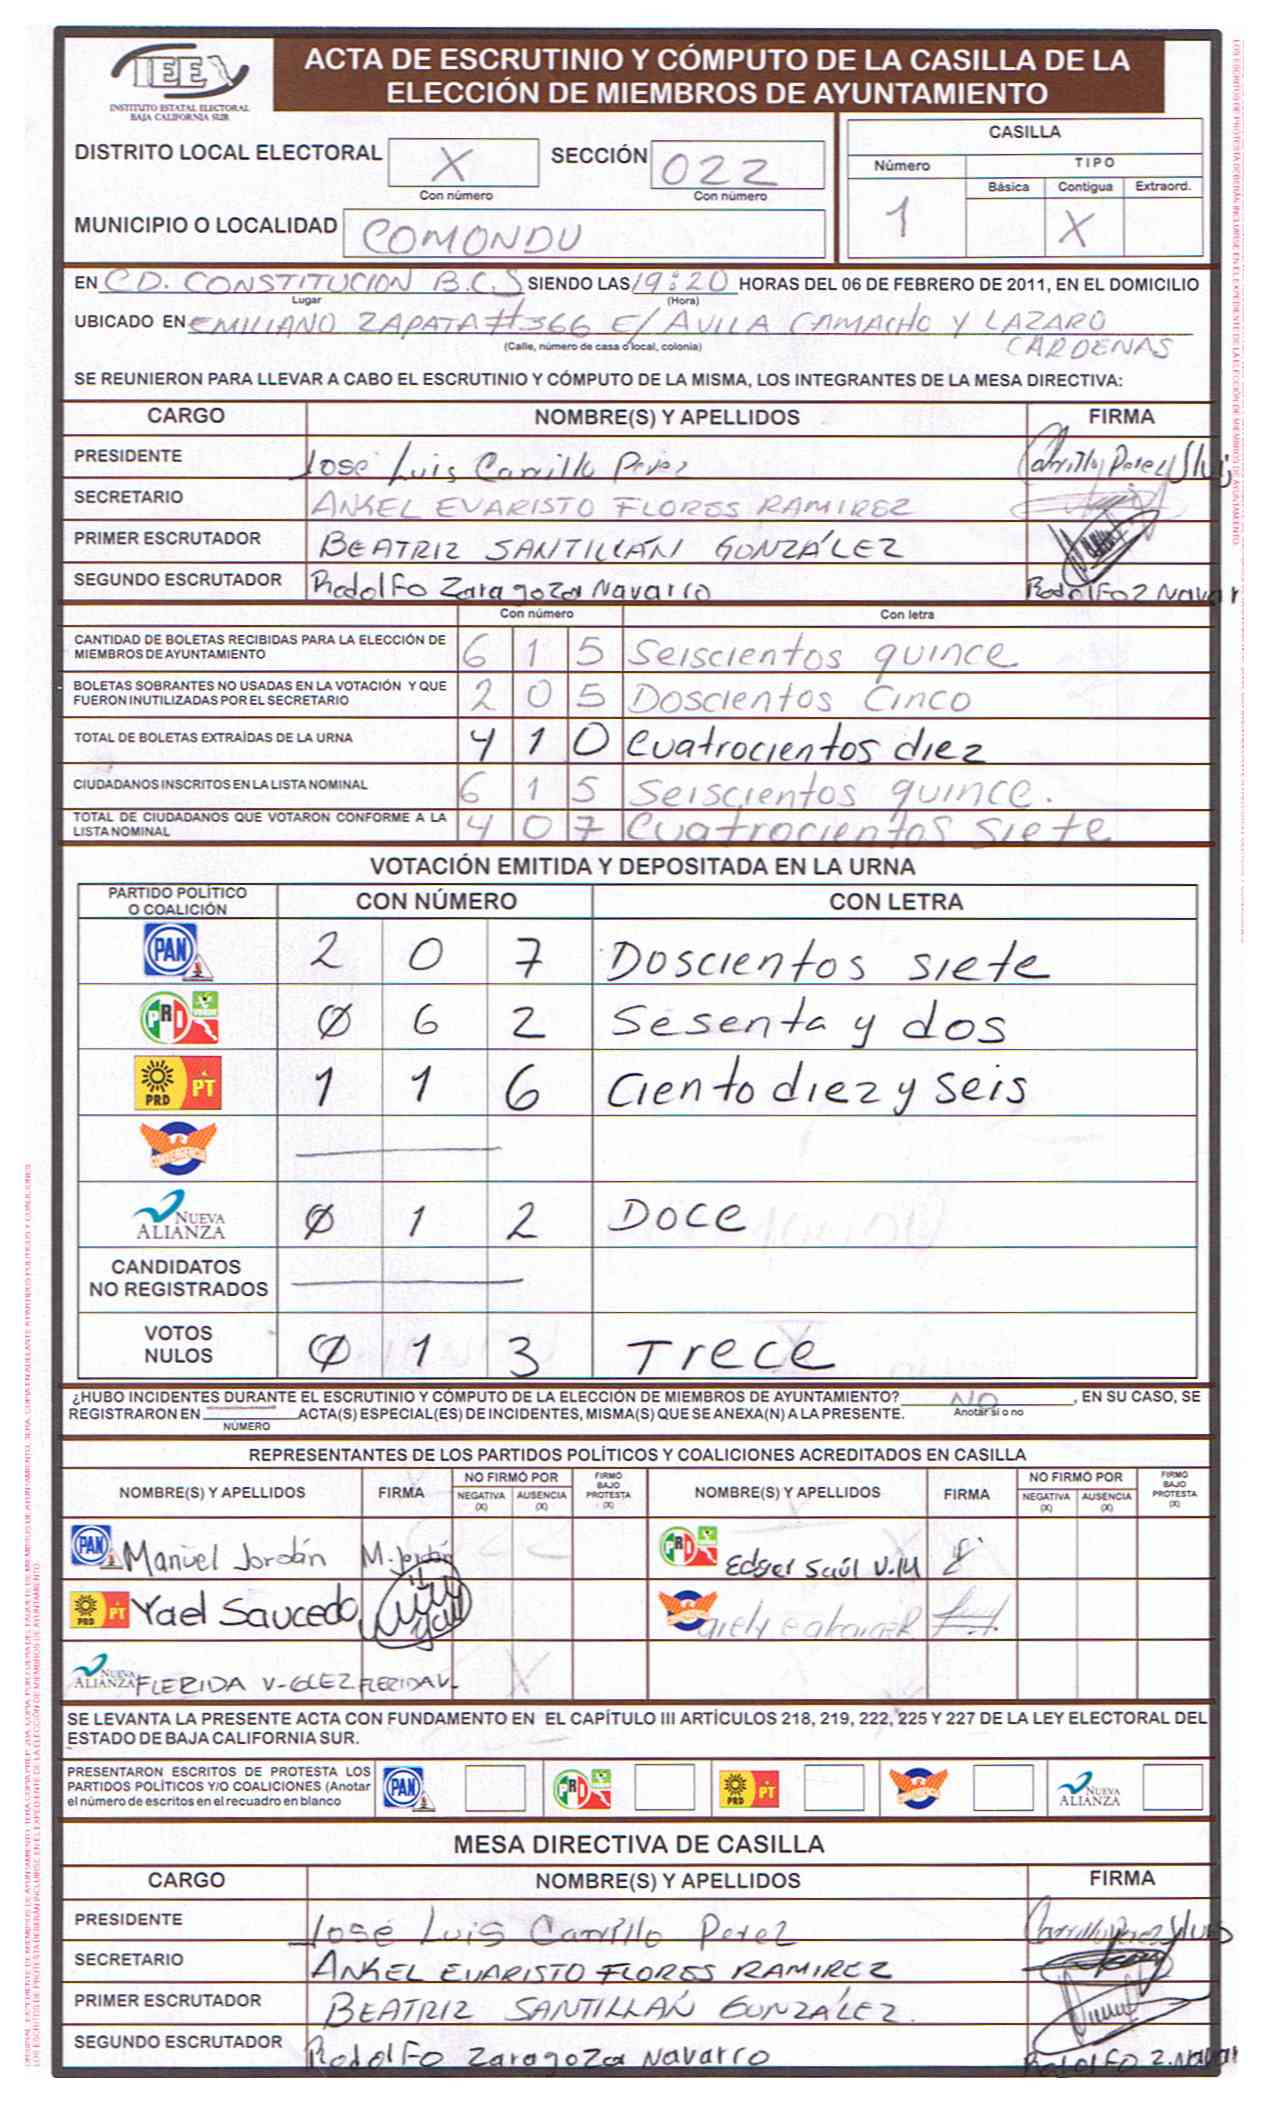 IEE
INSTITUTO ESTATAL ELECTORAL
BAJA CALIFORNIA SUR
ACTA DE ESCRUTINIO Y CÓMPUTO DE LA CASILLA DE LA
ELECCIÓN DE MIEMBROS DE AYUNTAMIENTO
DISTRITO LOCAL ELECTORAL X SECCIÓN 022
Con número Con número
MUNICIPIO O LOCALIDAD COMONDU
CASILLA
Número TIPO
Básica Contigua Extraord.
1 X
EN CD. CONSTITUCION B.C.S SIENDO LAS 19:20 HORAS DEL 06 DE FEBRERO DE 2011, EN EL DOMICILIO
Lugar (Hora)
UBICADO EN EMILIANO ZAPATA #366 E/ AVILA CAMACHO Y LAZARO
CARDENAS
(Calle, número de casa o local, colonia)
SE REUNIERON PARA LLEVAR A CABO EL ESCRUTINIO Y CÓMPUTO DE LA MISMA, LOS INTEGRANTES DE LA MESA DIRECTIVA:
CARGO NOMBRE(S) Y APELLIDOS FIRMA
PRESIDENTE José Luis Carrillo Perez Carrillo Perez J Luis
SECRETARIO ANKEL EVARISTO FLORES RAMIREZ
PRIMER ESCRUTADOR BEATRIZ SANTILLÁN GONZÁLEZ
SEGUNDO ESCRUTADOR Rodolfo Zaragoza Navarro Rodolfo Z Navar
Con número Con letra
CANTIDAD DE BOLETAS RECIBIDAS PARA LA ELECCIÓN DE
MIEMBROS DE AYUNTAMIENTO 6 1 5 Seiscientos quince
BOLETAS SOBRANTES NO USADAS EN LA VOTACIÓN Y QUE
FUERON INUTILIZADAS POR EL SECRETARIO 2 0 5 Doscientos Cinco
TOTAL DE BOLETAS EXTRAÍDAS DE LA URNA 4 1 0 Cuatrocientos diez
CIUDADANOS INSCRITOS EN LA LISTA NOMINAL 6 1 5 Seiscientos quince.
TOTAL DE CIUDADANOS QUE VOTARON CONFORME A LA
LISTA NOMINAL 4 0 7 Cuatrocientos Siete
VOTACIÓN EMITIDA Y DEPOSITADA EN LA URNA
PARTIDO POLÍTICO
O COALICIÓN CON NÚMERO CON LETRA
PAN 2 0 7 Doscientos siete
PRI VERDE Ø 6 2 Sesenta y dos
PRD PT 1 1 6 Ciento diez y seis
CONVERGENCIA
NUEVA ALIANZA Ø 1 2 Doce
CANDIDATOS
NO REGISTRADOS
VOTOS
NULOS Ø 1 3 Trece
¿HUBO INCIDENTES DURANTE EL ESCRUTINIO Y CÓMPUTO DE LA ELECCIÓN DE MIEMBROS DE AYUNTAMIENTO? NO, EN SU CASO, SE
Anotar sí o no
REGISTRARON EN ACTA(S) ESPECIAL(ES) DE INCIDENTES, MISMA(S) QUE SE ANEXA(N) A LA PRESENTE.
NÚMERO
REPRESENTANTES DE LOS PARTIDOS POLÍTICOS Y COALICIONES ACREDITADOS EN CASILLA
NOMBRE(S) Y APELLIDOS FIRMA NO FIRMÓ POR NEGATIVA (X) AUSENCIA (X) FIRMÓ BAJO PROTESTA (X) NOMBRE(S) Y APELLIDOS FIRMA NO FIRMÓ POR NEGATIVA (X) AUSENCIA (X) FIRMÓ BAJO PROTESTA (X)
PAN Manuel Jordán M. Jordán PRI Edgar Saúl V.M
PRD PT Yael Saucedo
NUEVA ALIANZA FLERIDA V-GLEZ FLERIDA V. X
SE LEVANTA LA PRESENTE ACTA CON FUNDAMENTO EN EL CAPÍTULO III ARTÍCULOS 218, 219, 222, 225 Y 227 DE LA LEY ELECTORAL DEL
ESTADO DE BAJA CALIFORNIA SUR.
PRESENTARON ESCRITOS DE PROTESTA LOS
PARTIDOS POLÍTICOS Y/O COALICIONES (Anotar
el número de escritos en el recuadro en blanco
PAN PRI PRD PT NUEVA ALIANZA
MESA DIRECTIVA DE CASILLA
CARGO NOMBRE(S) Y APELLIDOS FIRMA
PRESIDENTE José Luis Carrillo Perez Carrillo Perez J Luis
SECRETARIO ANKEL EVARISTO FLORES RAMIREZ
PRIMER ESCRUTADOR BEATRIZ SANTILLÁN GONZÁLEZ.
SEGUNDO ESCRUTADOR Rodolfo Zaragoza Navarro Rodolfo Z. Navar